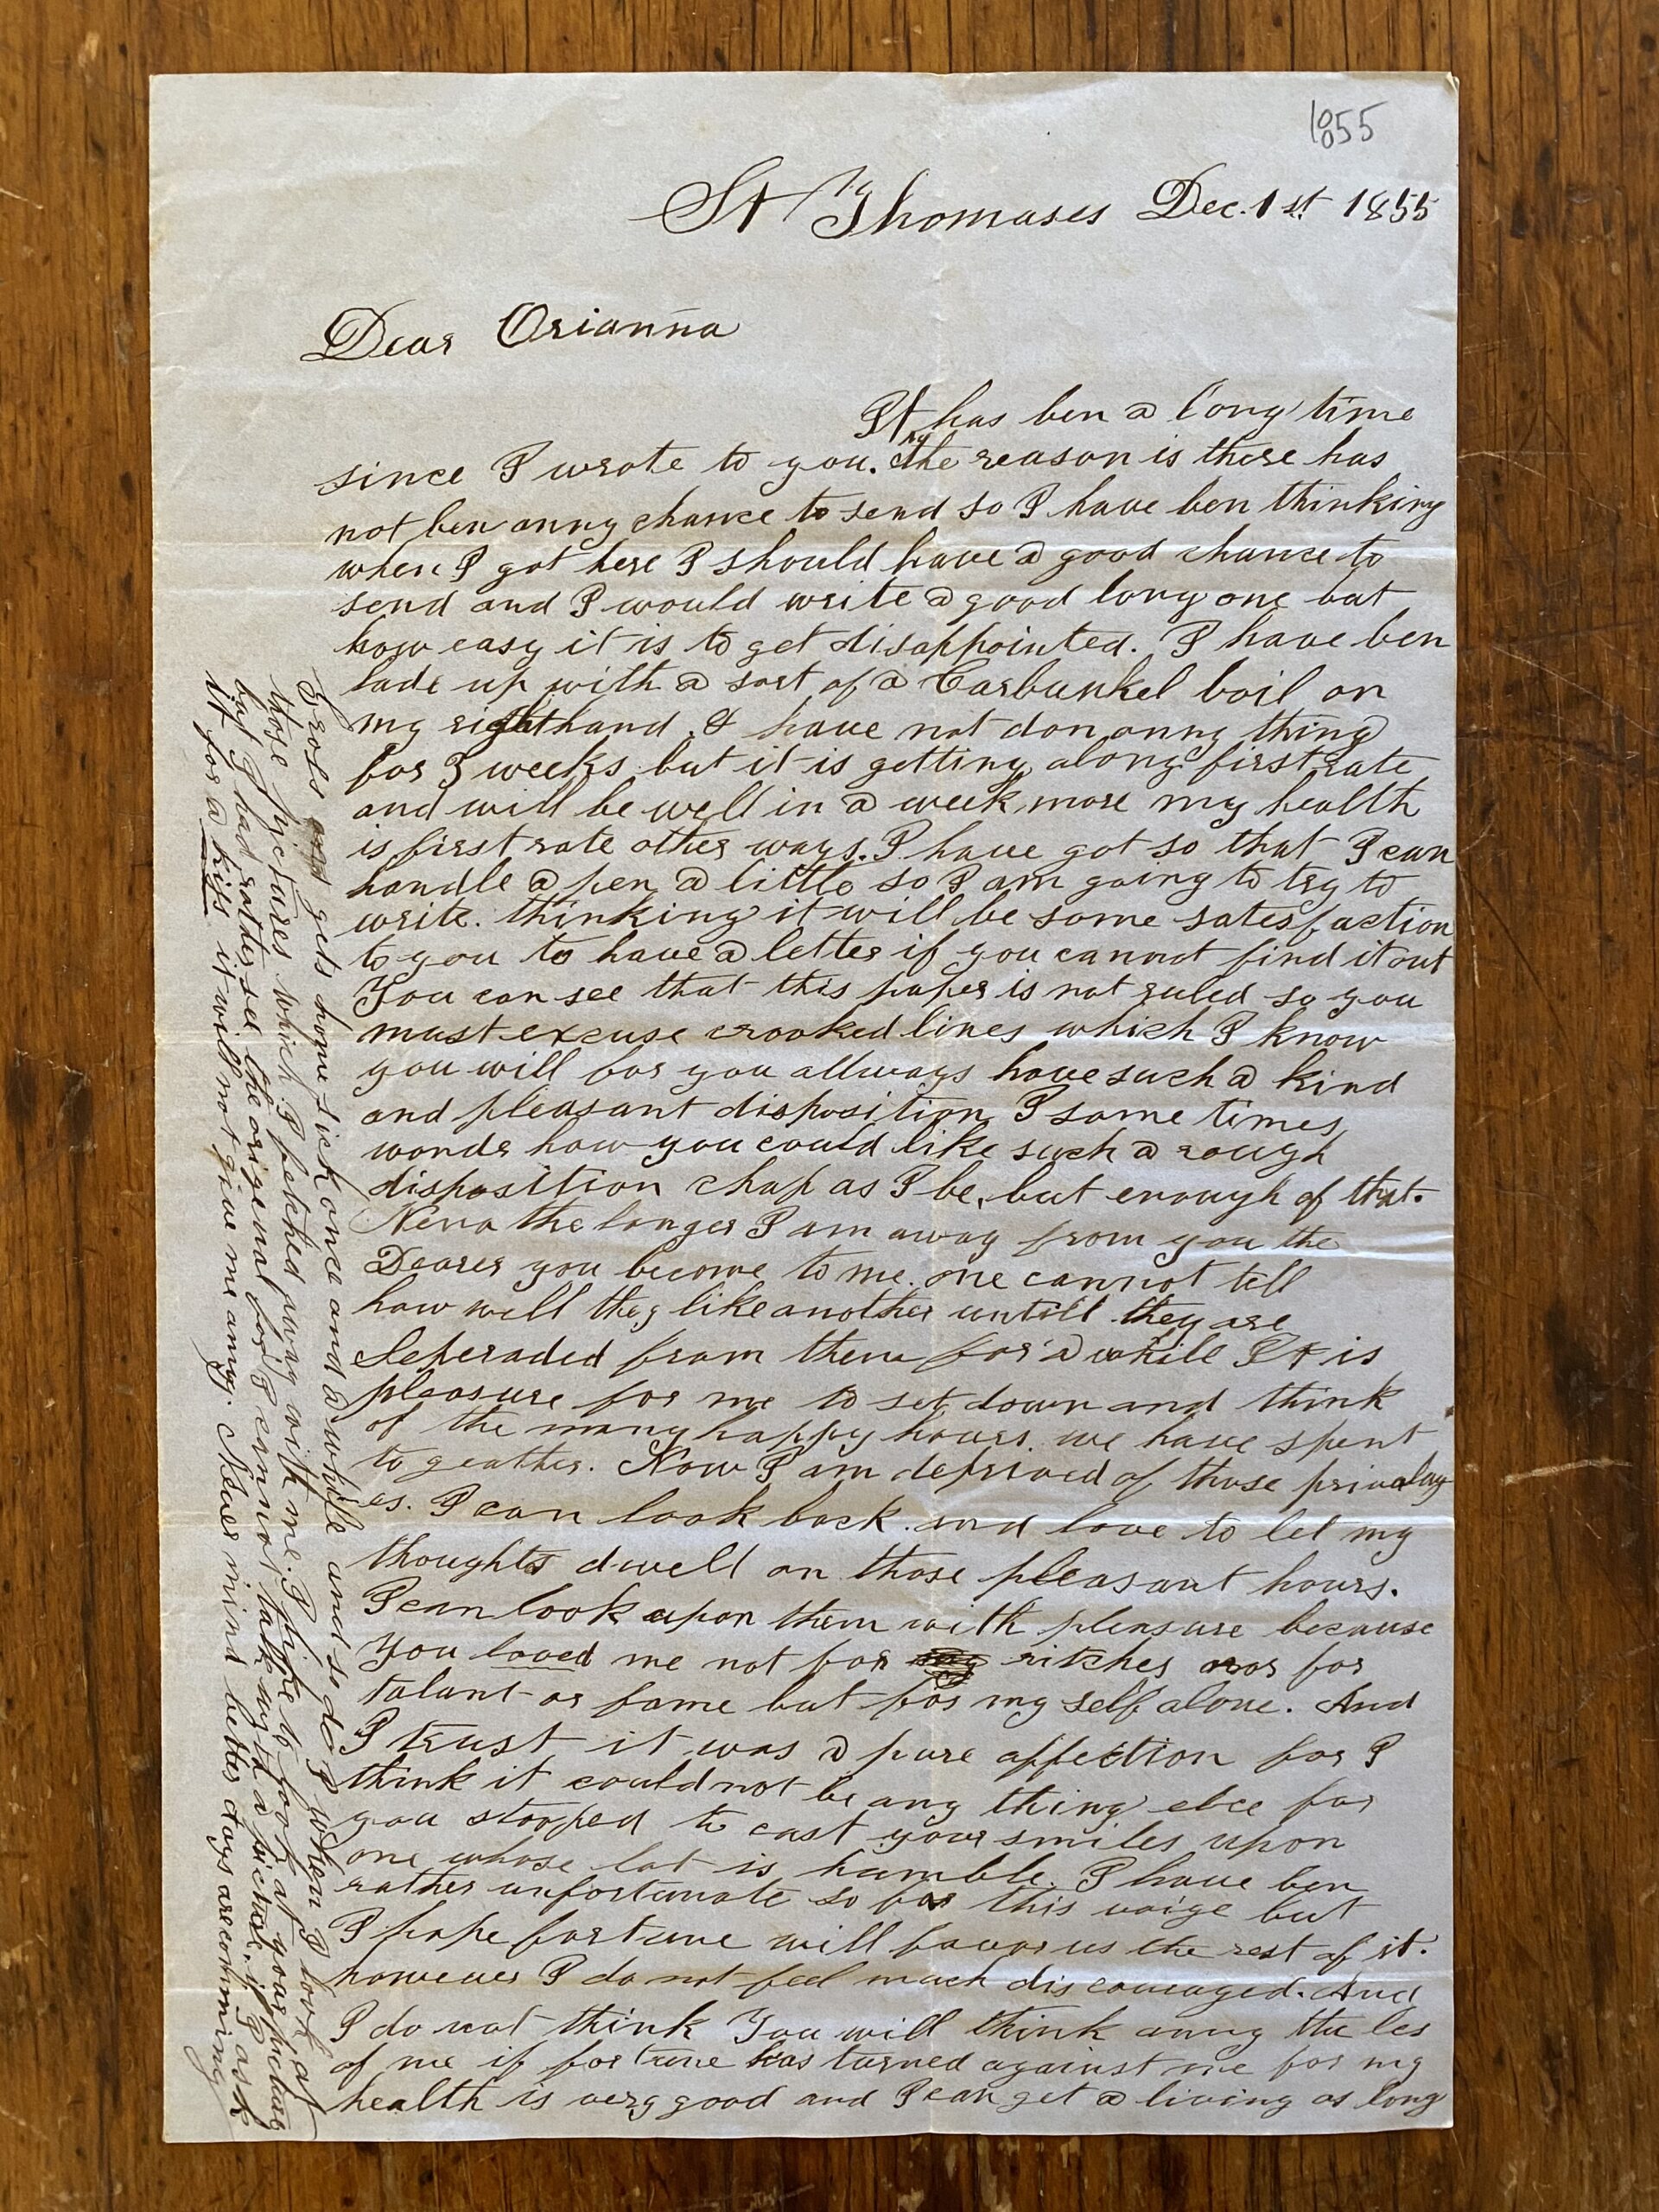 1855
St Thomases Dec. 1st 1855
Dear Orianna
It has ben a long time
since I wrote to you. the reason is there has
not ben anny chance to send so I have ben thinking
when I got here I should have a good chance to
send and I would write a good long one but
how easy it is to get disappointed. I have ben
lade up with a sort of a Carbunkel boil on
my right hand & have not don anny thing
for 3 weeks but it is getting along first rate
and will be well in a week more my health
is first rate other ways. I have got so that I can
handle a pen a little so I am going to try to
write. thinking it will be some satesfaction
to you to have a letter if you cannot find it out
You can see that this paper is not ruled so you
must excuse crooked lines which I know
you will for you allways have such a kind
and pleasant disposition I some times
wonder how you could like such a rough
disposition chap as I be, but enough of that.
the longer I am away from you the
Dearer you become to me. one cannot tell
how well they like another untill they are
Seperaded from them for a while It is
pleasure for me to set down and think
of the many happy hours we have spent
to geather. Now I am deprived of those privalag
es. I can look back and love to let my
thoughts dwell on those pleasant hours.
I can look upon them with pleasure because
You loved me not for ritches nor for
talant or fame but for my self alone. And
I trust it was a pure affection for I
think it could not be any thing elce for
you stooped to cast your smiles upon
one whose lot is humble. I have ben
rather unfortunate so far this voige but
I hope fortune will favor us the rest of it.
however I do not feel much discouraged. And
I do not think You will think anny the les
of me if fortune has turned against me for my
health is very good and I can get a living as long
gets home sick once and a while and so do I when I look at
those pictures which I fetched away with me. I prize to look at your picture
but I had rather see the origenal for I cannot take up to a picture, if I ask
it for a kiss it will not give me anny. Never mind better days are comming